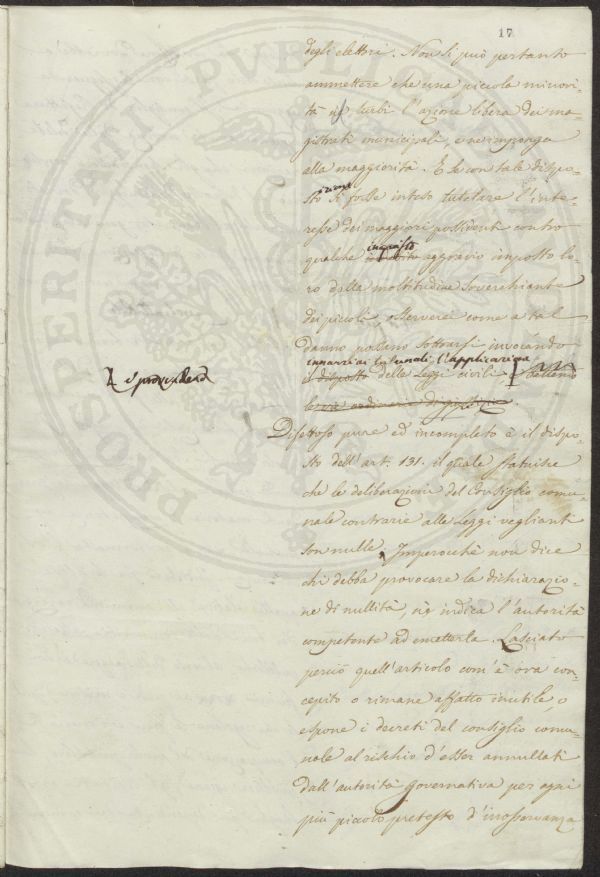 17
degli elettori. Non si può pertanto
ammettere che una piccola minori=
tà turbi l'azione libera dei ma=
gistrati municipali, e ne imponga
alla maggiorità. E se con tale dispo=
sizione
sto si fosse inteso tutelare l'inte=
resse dei maggiori possidenti contro
ingiusto
qualche aggravio imposto lo=
ro dalla moltitudine soverchiante
dei piccoli, osserverei come a tal
danno possano sottrarsi invocando
innanzi ai tribunali l'applicazione
il disposto delle Leggi civili, e battendo
le vie ordinarie di giustizia.
Difettoso pure ed incompleto è il dispo=
sto dell'art. 131. il quale statuisce
che le deliberazioni del Consiglio comu=
nale contrarie alle Leggi veglianti
son nulle, Imperocchè non dice
chi debba provocare la dichiarazio=
ne di nullità, nè indica l'autorità
competente ad emetterla. Lasciato
perciò quell'articolo com'è ora con=
cepito o rimane affatto inutile, o
espone i decreti del consiglio comu=
nale al rischio d'esser annullati
dall'autorità Governativa per ogni
più piccolo pretesto d'inosservanza
PROSPERITATI PVBLICAE